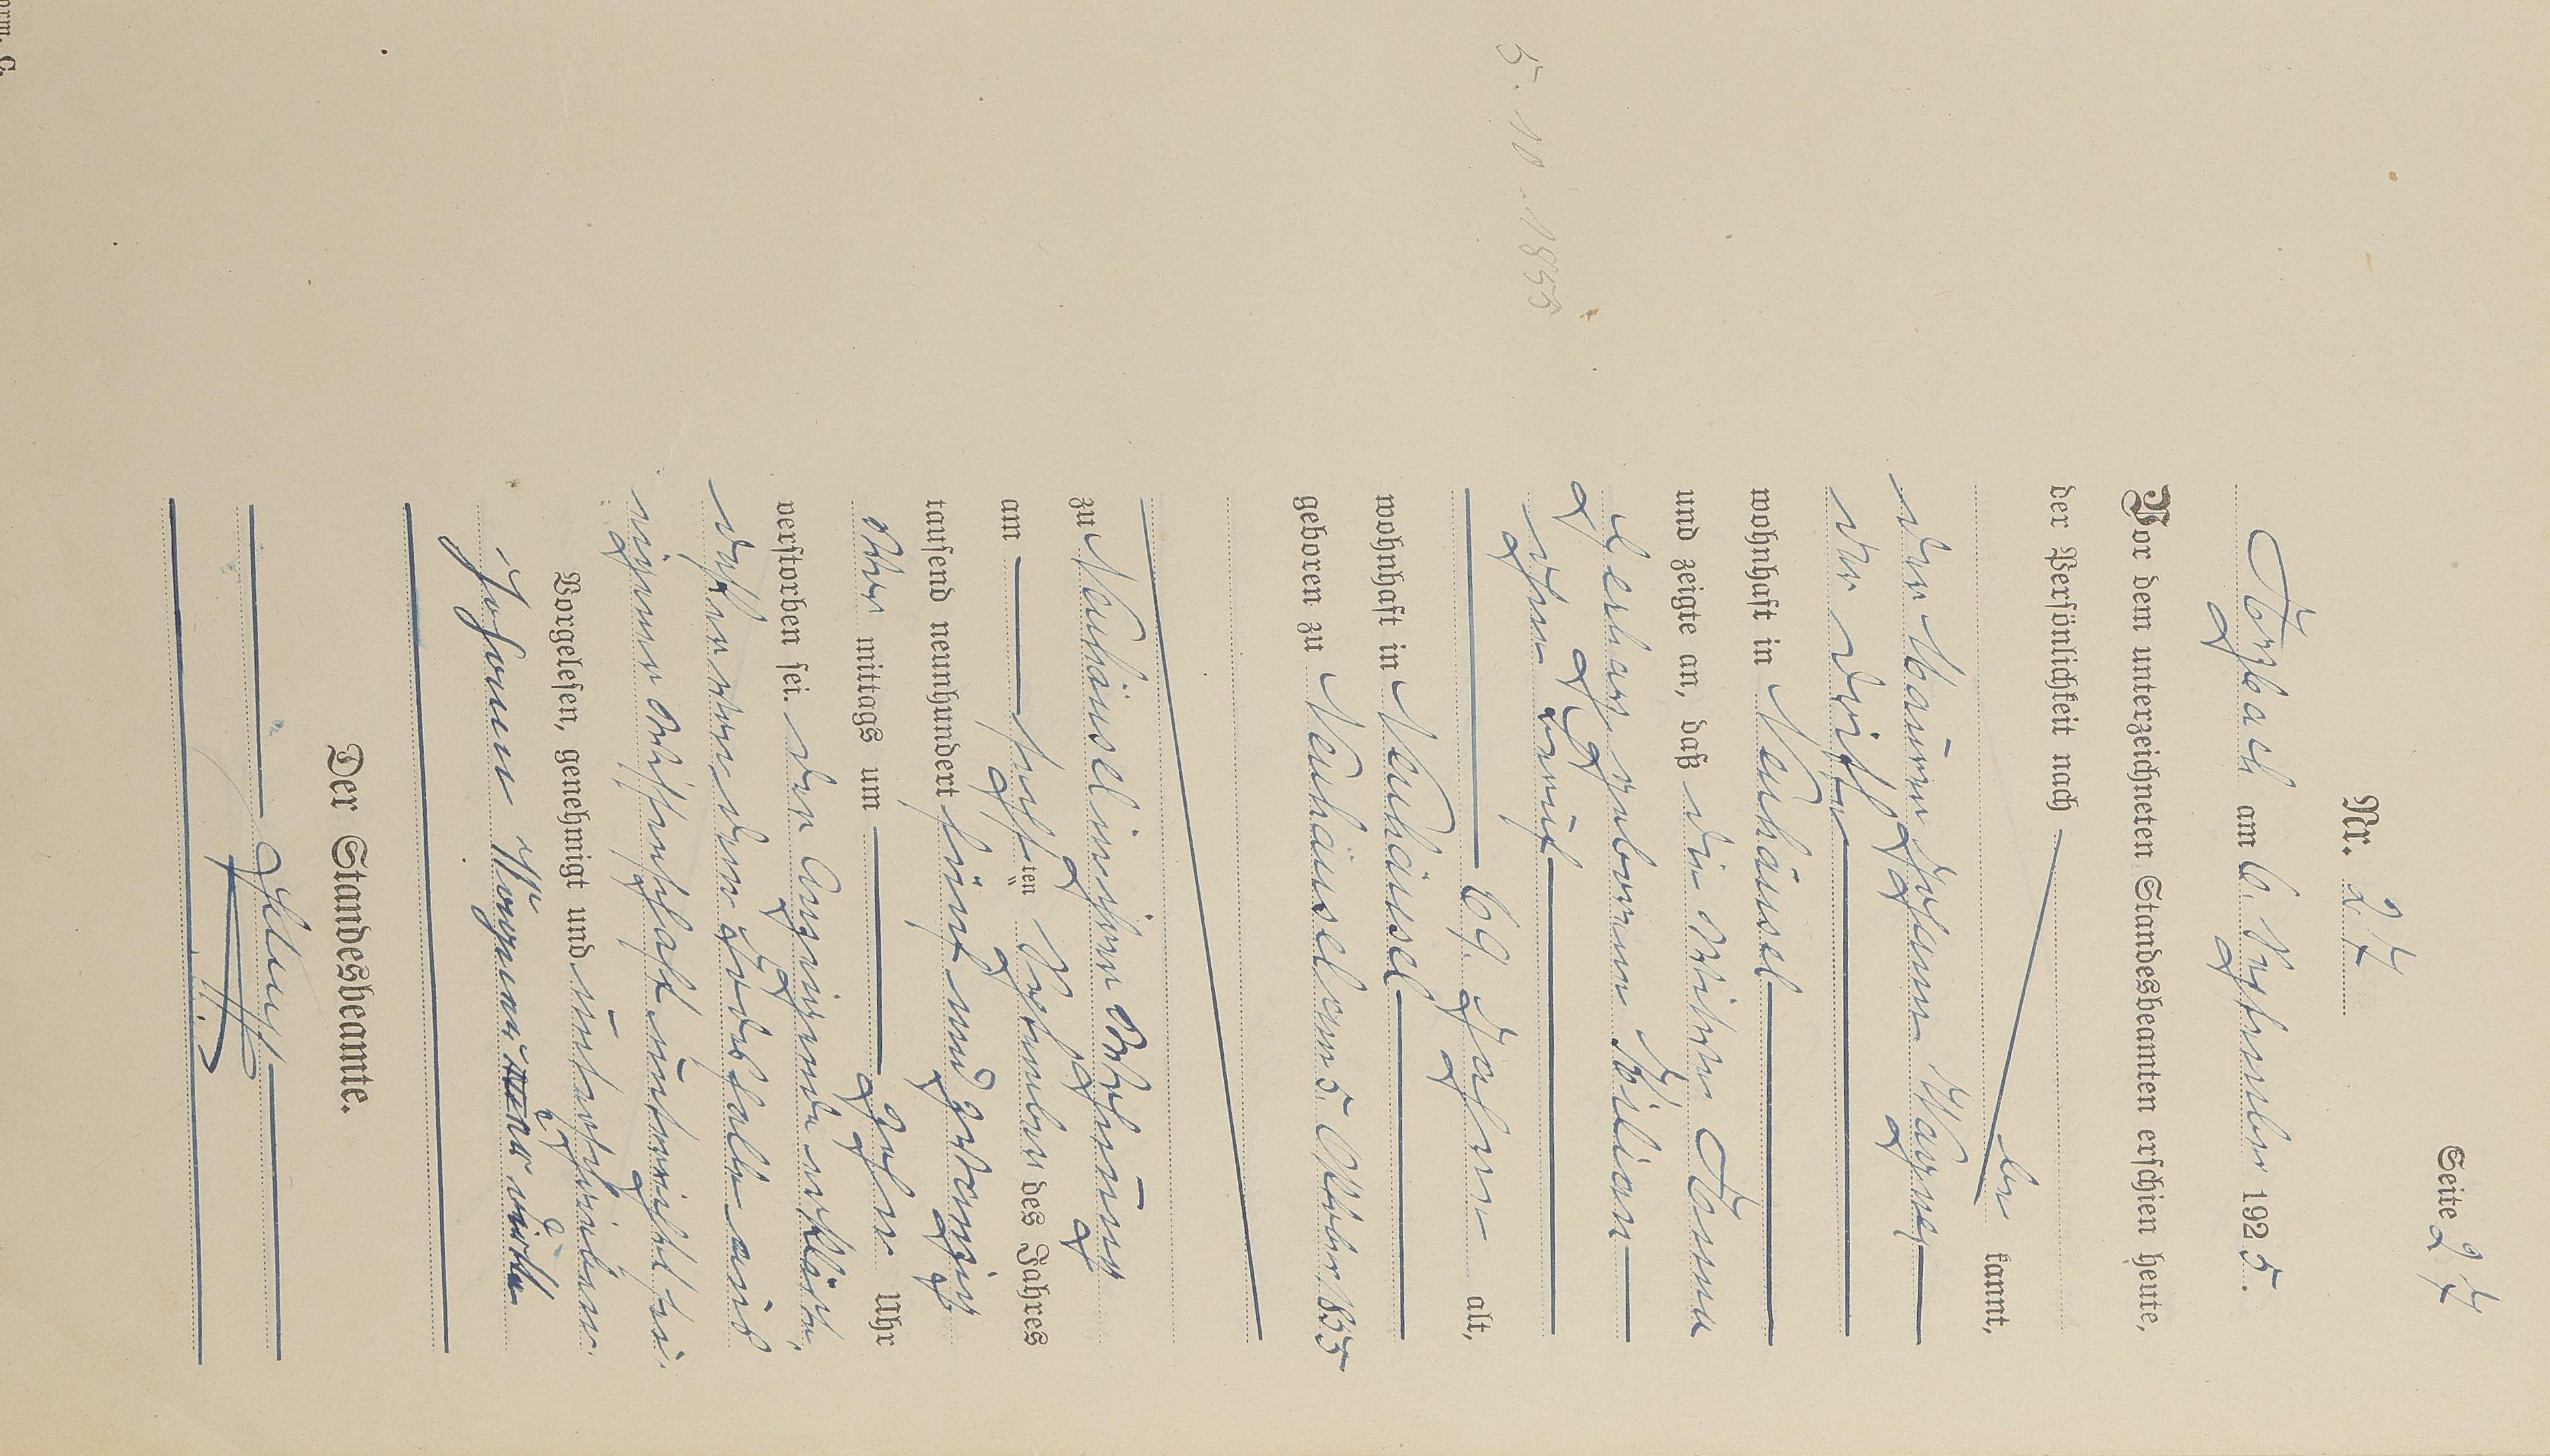 Seite 27
Nr. 27
Horbach am 6. September 1925.
Vor dem unterzeichneten Standesbeamten erschien heute,
der Persönlichkeit nach
be kannt,
der Maurer Johann Wagner
der dritte
wohnhaft in Neuhäusel
und zeigte an, daß die Witwe Anna
Gerharz, geborene Kilian
ohne Beruf
69 Jahre alt,
wohnhaft in Neuhäusel
geboren zu Neuhäusel am 5. Oktober 1855
5. 10. 1855
zu Neuhäusel in ihrer Wohnung
am ten September des Jahres
tausend neunhundert fünf und zwanzig
vor mittags um zehn Uhr
verstorben sei. Der Anzeigende erklärte,
daß er von dem Todesfalle aus
eigener Wissenschaft unterrichtet sei.
Vorgelesen, genehmigt und unterschrieben.
Johann Wagner
Der Standesbeamte.
orm. C.